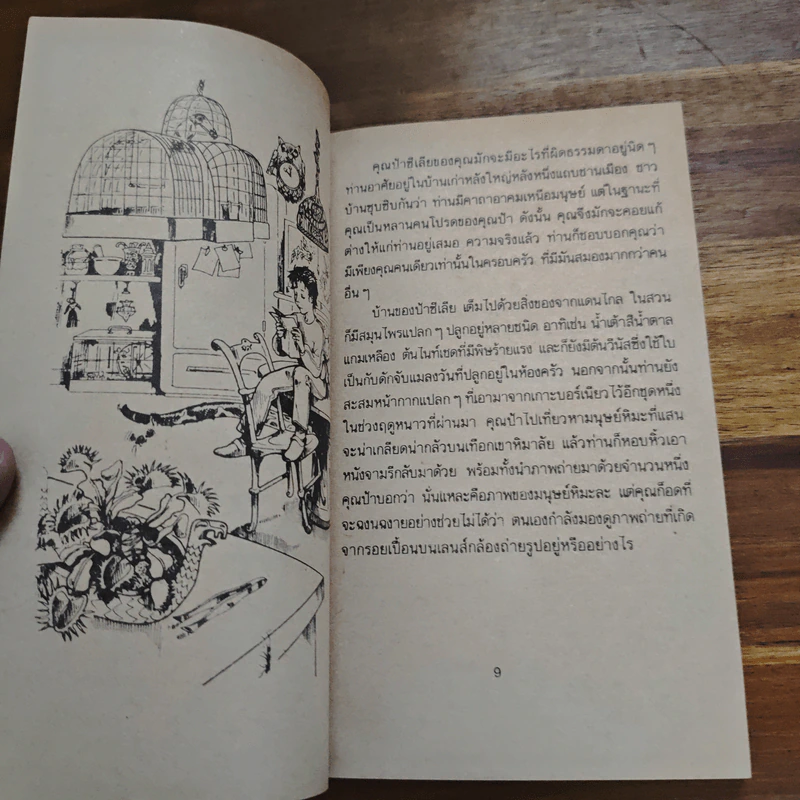 คุณป้าซีเลียของคุณมักจะมีอะไรที่ผิดธรรมดาอยู่นิด ๆ
ท่านอาศัยอยู่ในบ้านเก่าหลังใหญ่หลังหนึ่งแถบชานเมือง ชาว
บ้านซุบซิบกันว่า ท่านมีคาถาอาคมเหนือมนุษย์ แต่ในฐานะที่
คุณเป็นหลานคนโปรดของคุณป้า ดังนั้น คุณจึงมักจะคอยแก้
ต่างให้แก่ท่านอยู่เสมอ ความจริงแล้ว ท่านก็ชอบบอกคุณว่า
มีเพียงคุณคนเดียวเท่านั้นในครอบครัว ที่มีมันสมองมากกว่าคน
อื่น ๆ
บ้านของป้าซีเลีย เต็มไปด้วยสิ่งของจากแดนไกล ในสวน
ก็มีสมุนไพรแปลก ๆ ปลูกอยู่หลายชนิด อาทิเช่น น้ำเต้าสีน้ำตาล
แกมเหลือง ต้นไนท์เชดที่มีพิษร้ายแรง และก็ยังมีต้นวีนัสซึ่งใช้ใบ
เป็นกับดักจับแมลงวันที่ปลูกอยู่ในห้องครัว นอกจากนั้นท่านยัง
สะสมหน้ากากแปลก ๆ ที่เอามาจากเกาะบอร์เนียวไว้อีกชุดหนึ่ง
ในช่วงฤดูหนาวที่ผ่านมา คุณป้าไปเที่ยวหามนุษย์หิมะที่แสน
จะน่าเกลียดน่ากลัวบนเทือกเขาหิมาลัย แล้วท่านก็หอบหิ้วเอา
หนังจามรีกลับมาด้วย พร้อมทั้งนำภาพถ่ายมาด้วยจำนวนหนึ่ง
คุณป้าบอกว่า นั่นแหละคือภาพของมนุษย์หิมะละ แต่คุณก็อดที่
จะฉงนฉงายอย่างช่วยไม่ได้ว่า ตนเองกำลังมองดูภาพถ่ายที่เกิด
จากรอยเปื้อนบนเลนส์กล้องถ่ายรูปอยู่หรืออย่างไร
9